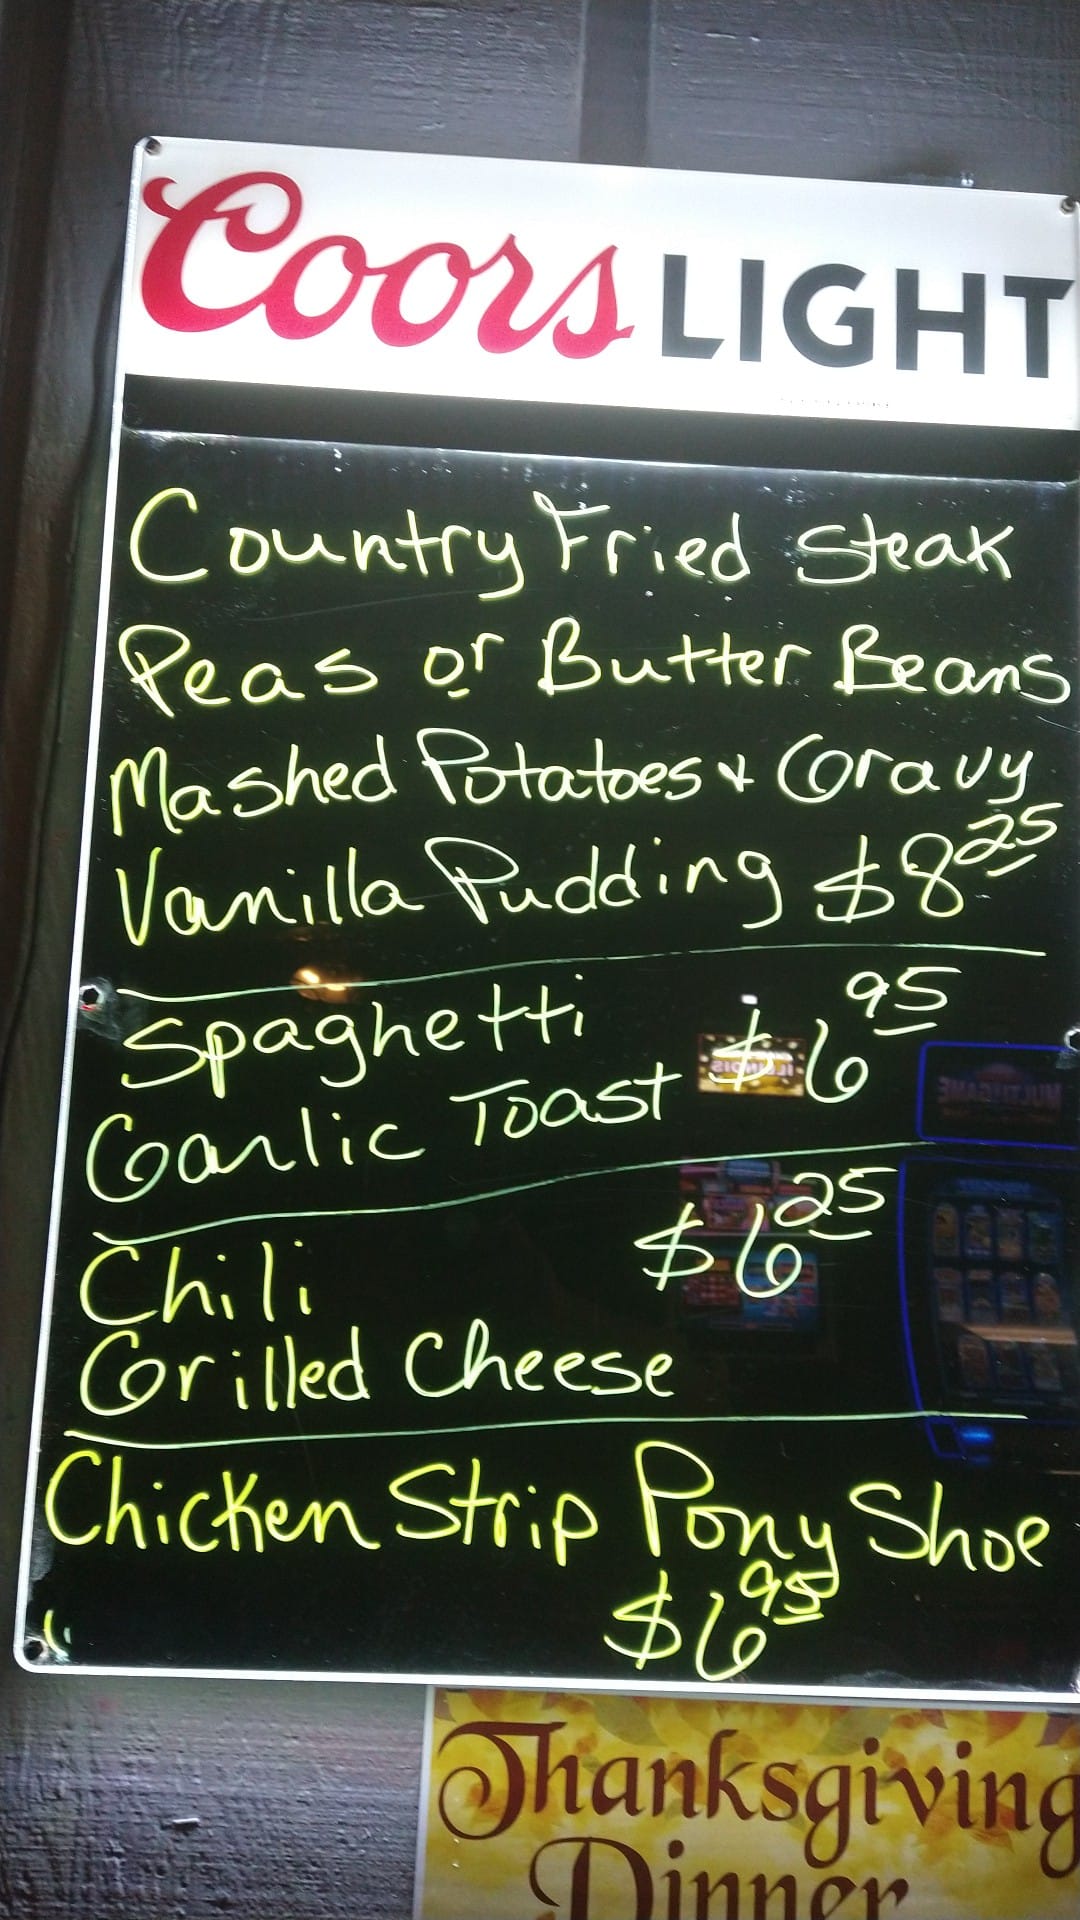 Coors LIGHT
Country Fried Steak
Peas or Butter Beans
Mashed Potatoes & Gravy
Vanilla Pudding $8.25
Spaghetti $6.95
Garlic Toast
Chili $6.25
Grilled Cheese
Chicken Strip Pony Shoe
$6.95
Thanksgiving
Dinner